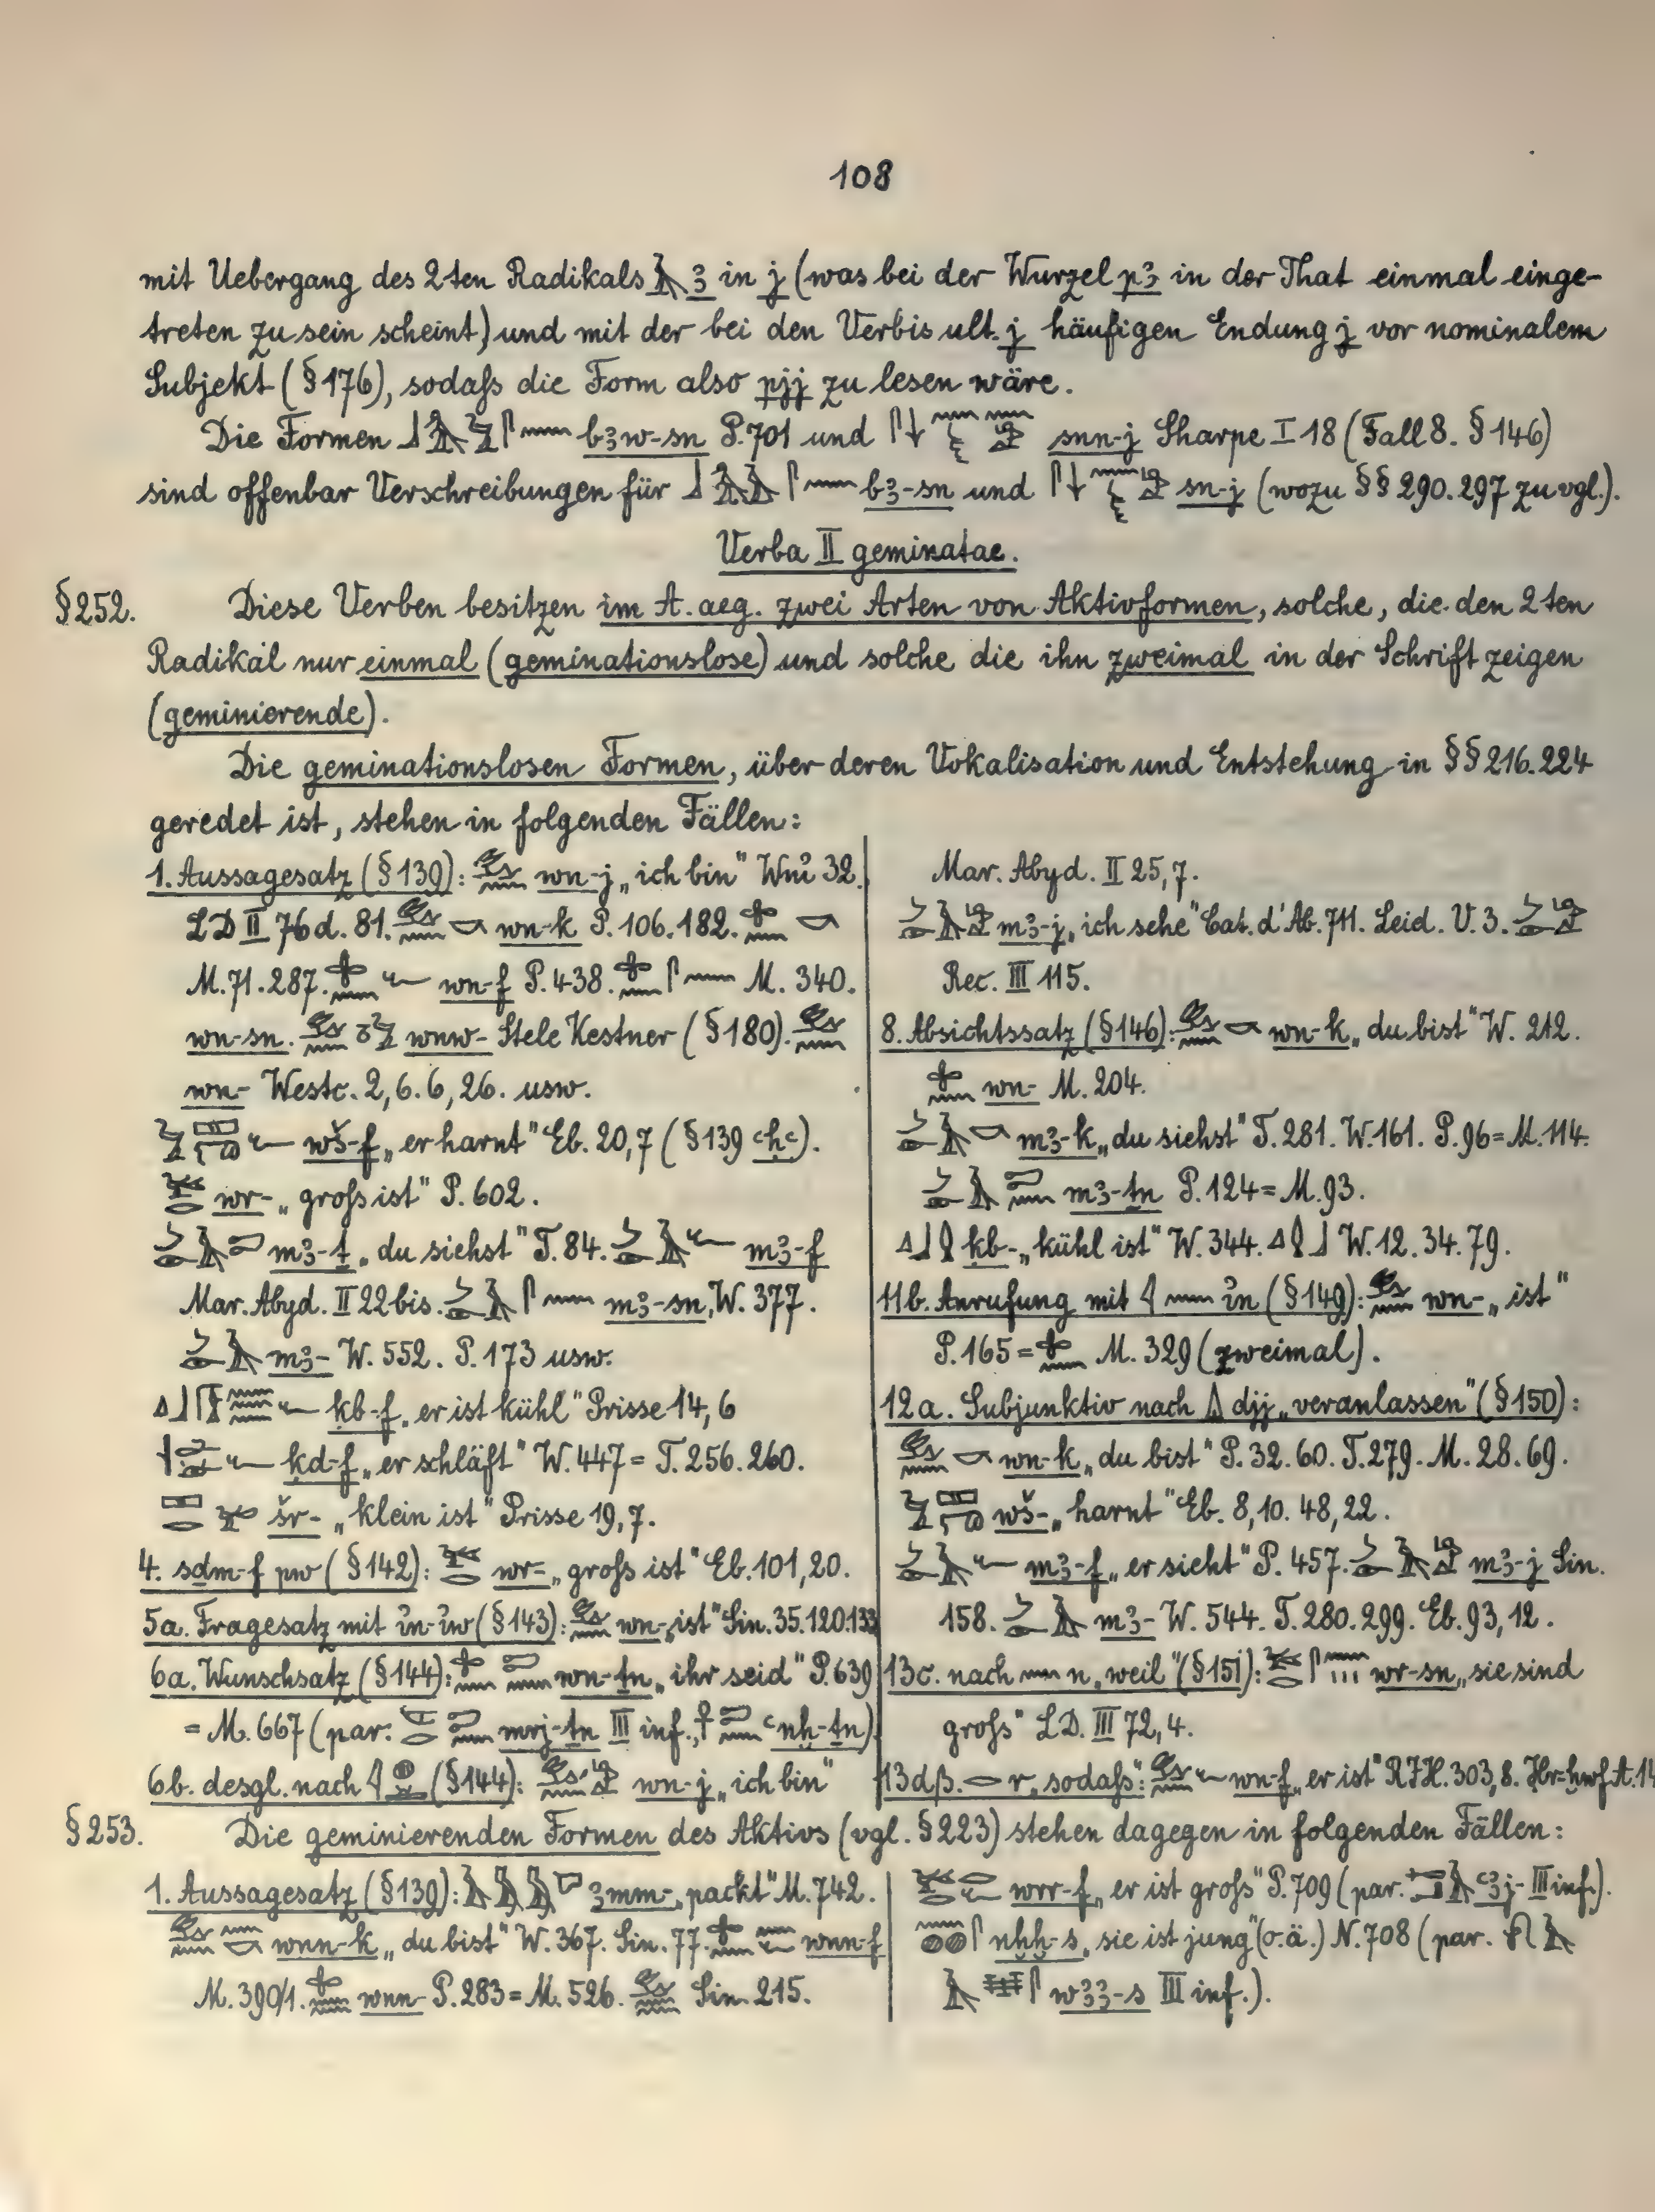 108
mit Uebergang des 2ten Radikals 𓄿 ꜣ in j (was bei der Wurzel pꜣ in der That einmal einge-
treten zu sein scheint) und mit der bei den Verbis ult. j häufigen Endung j vor nominalem
Subjekt (§ 176), sodaſs die Form also pjj zu lesen wäre.
Die Formen bꜣw-sn P. 701 und snn-j Sharpe I 18 (Fall 8. § 146)
sind offenbar Verschreibungen für bꜣ-sn und sn-j (wozu §§ 290. 297 zu vgl.).
Verba II geminatae.
§ 252. Diese Verben besitzen im A. aeg. zwei Arten von Aktivformen, solche, die den 2ten
Radikal nur einmal (geminationslose) und solche die ihn zweimal in der Schrift zeigen
(geminierende).
Die geminationslosen Formen, über deren Vokalisation und Entstehung in §§ 216. 224
geredet ist, stehen in folgenden Fällen:
1. Aussagesatz (§ 139): wn-j „ich bin" Wnỉ 32.
LD II 76 d. 81. wn-k P. 106. 182.
M. 71. 287. wn-f P. 438. M. 340.
wn-sn. wnw- Stele Kestner (§ 180).
wn- Westc. 2, 6. 6, 26. usw.
wš-f „er harnt" Eb. 20, 7 (§ 139 ꜥḥꜥ).
wr- „groſs ist" P. 602.
mꜣ-ṯ „du siehst" T. 84. mꜣ-f
Mar. Abyd. II 22 bis. mꜣ-sn, W. 377.
mꜣ- W. 552. P. 173 usw.
ḳb-f „er ist kühl" Prisse 14, 6
ḳd-f „er schläft" W. 447 = T. 256. 260.
šr- „klein ist" Prisse 19, 7.
4. sḏm-f pw (§ 142): wr- „groſs ist" Eb. 101, 20.
5a. Fragesatz mit ỉn-ỉw (§ 143): wn- „ist" Sin. 35. 120. 133
6a. Wunschsatz (§ 144): wn-ṯn „ihr seid" P. 639
= M. 667 (par. mrj-ṯn III inf., ꜥnḫ-ṯn)
6b. desgl. nach (§ 144): wn-j „ich bin"
Mar. Abyd. II 25, 7.
mꜣ-j „ich sehe" Cat. d'Ab. 711. Leid. V. 3.
Rec. III 115.
8. Absichtssatz (§ 146): wn-k „du bist" W. 212.
wn- M. 204.
mꜣ-k „du siehst" T. 281. W. 161. P. 96 = M. 114.
mꜣ-ṯn P. 124 = M. 93.
ḳb- „kühl ist" W. 344. W. 12. 34. 79.
11b. Anrufung mit ỉn (§ 149): wn- „ist"
P. 165 = M. 329 (zweimal).
12a. Subjunktiv nach djj „veranlassen" (§ 150):
wn-k „du bist" P. 32. 60. T. 279. M. 28. 69.
wš- „harnt" Eb. 8, 10. 48, 22.
mꜣ-f „er sieht" P. 457. mꜣ-j Sin.
158. mꜣ- W. 544. T. 280. 299. Eb. 93, 12.
13c. nach n „weil" (§ 151): wr-sn „sie sind
groſs" LD. III 72, 4.
13dβ. r „sodaſs": wn-f „er ist" RJH. 303, 8.
§ 253. Die geminierenden Formen des Aktivs (vgl. § 223) stehen dagegen in folgenden Fällen:
1. Aussagesatz (§ 139): ꜣmm- „packt" M. 742.
wnn-k „du bist" W. 367. Sin. 77. wnn-f
M. 390/1. wnn- P. 283 = M. 526. Sin. 215.
wrr-f „er ist groſs" P. 709 (par. ꜥꜣj- III inf.).
nḫḫ-s „sie ist jung" (o. ä.) N. 708 (par.
wꜣꜣ-s III inf.).